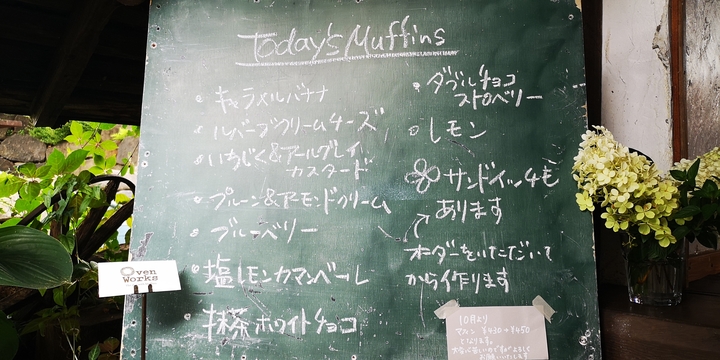 Today's Muffins
• キャラメルバナナ
• ルバーブクリームチーズ
• いちじく&アールグレイ
カスタード
• プルーン&アーモンドクリーム
• ブルーベリー
• 塩レモンカマンベール
• 抹茶ホワイトチョコ
• ダブルチョコ
ストロベリー
• レモン
サンドイッチも
あります
オーダーをいただいて
から作ります
Oven
Works
10月より
マフィン ¥430→¥450
となります。
お願いいたします